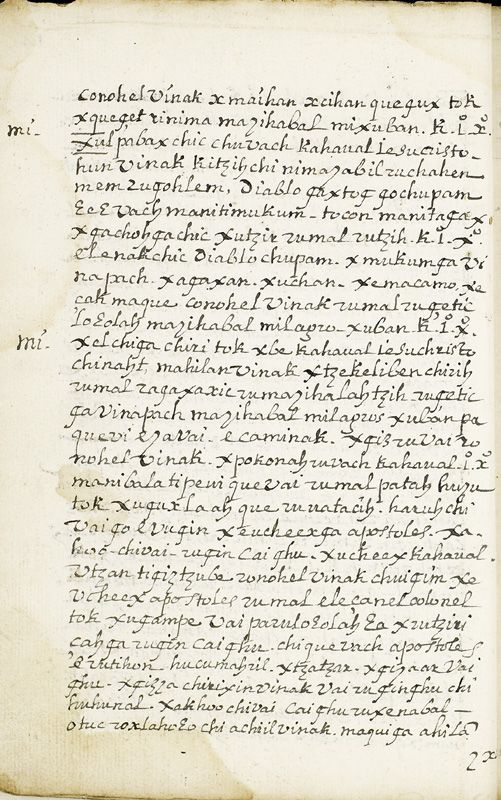 conohel Vinak x maihan xcihan quegux tok
xqueget rinima mayihabal mixuban. k. i. x.
mi- xul pabax chic chuvach kahaual iesucristo-
hun Vinak kitzih chi nima yabil ruchahen
mem rugohlem, Diablo gaxtog gochupam
manitimukum - tocon manitaga x
x gachohga chic xutzir rumal rutzih. k. i. x.
elenak chic Diablo chupam. x mukum ga Vi
na pach. xagaxan. xuchan. xemacamo, xe
cak maque conohel Vinak rumal rugetic
mayihabal milagro - xuban. k. i. x.
mi- xel chiga chiri tok xbe kahaual iesuchristo
chinaht, mahilan Vinak xtzekeliben chirih
rumal ragaxaxic rumayihalah tzih rugetic
ga vinapach mayihabal milagros xuban pa
que vi e caminak. xgiz ruvai ro
nohel Vinak. xpokonah ruvach kahaual. i. x.
manibala tipeui que vai rumal patah huyu
tok xuguxlaah que ruvatacih. haruh chi
Vai go rugin xeucheexga apostoles. xa-
hoo- chivai- rugin cai ghu. xucheex kahaual.
Vtzan tigiztzube ronohel Vinak chuigim xe
Vcheex apostoles rumal elecanel colonel
tok xugampe Vai xrutziri
cahga rugin cai ghu. chiquevach apostoles
rutihon hucumahril. xtzatzar. xgiyaar Vai
ghu. xgizya chirixin vinak vai ruginghu chi
huhunal. xakhoo chivai cai ghu ruxenabal-
otuc chi achiil vinak. maquiga ahila
2x